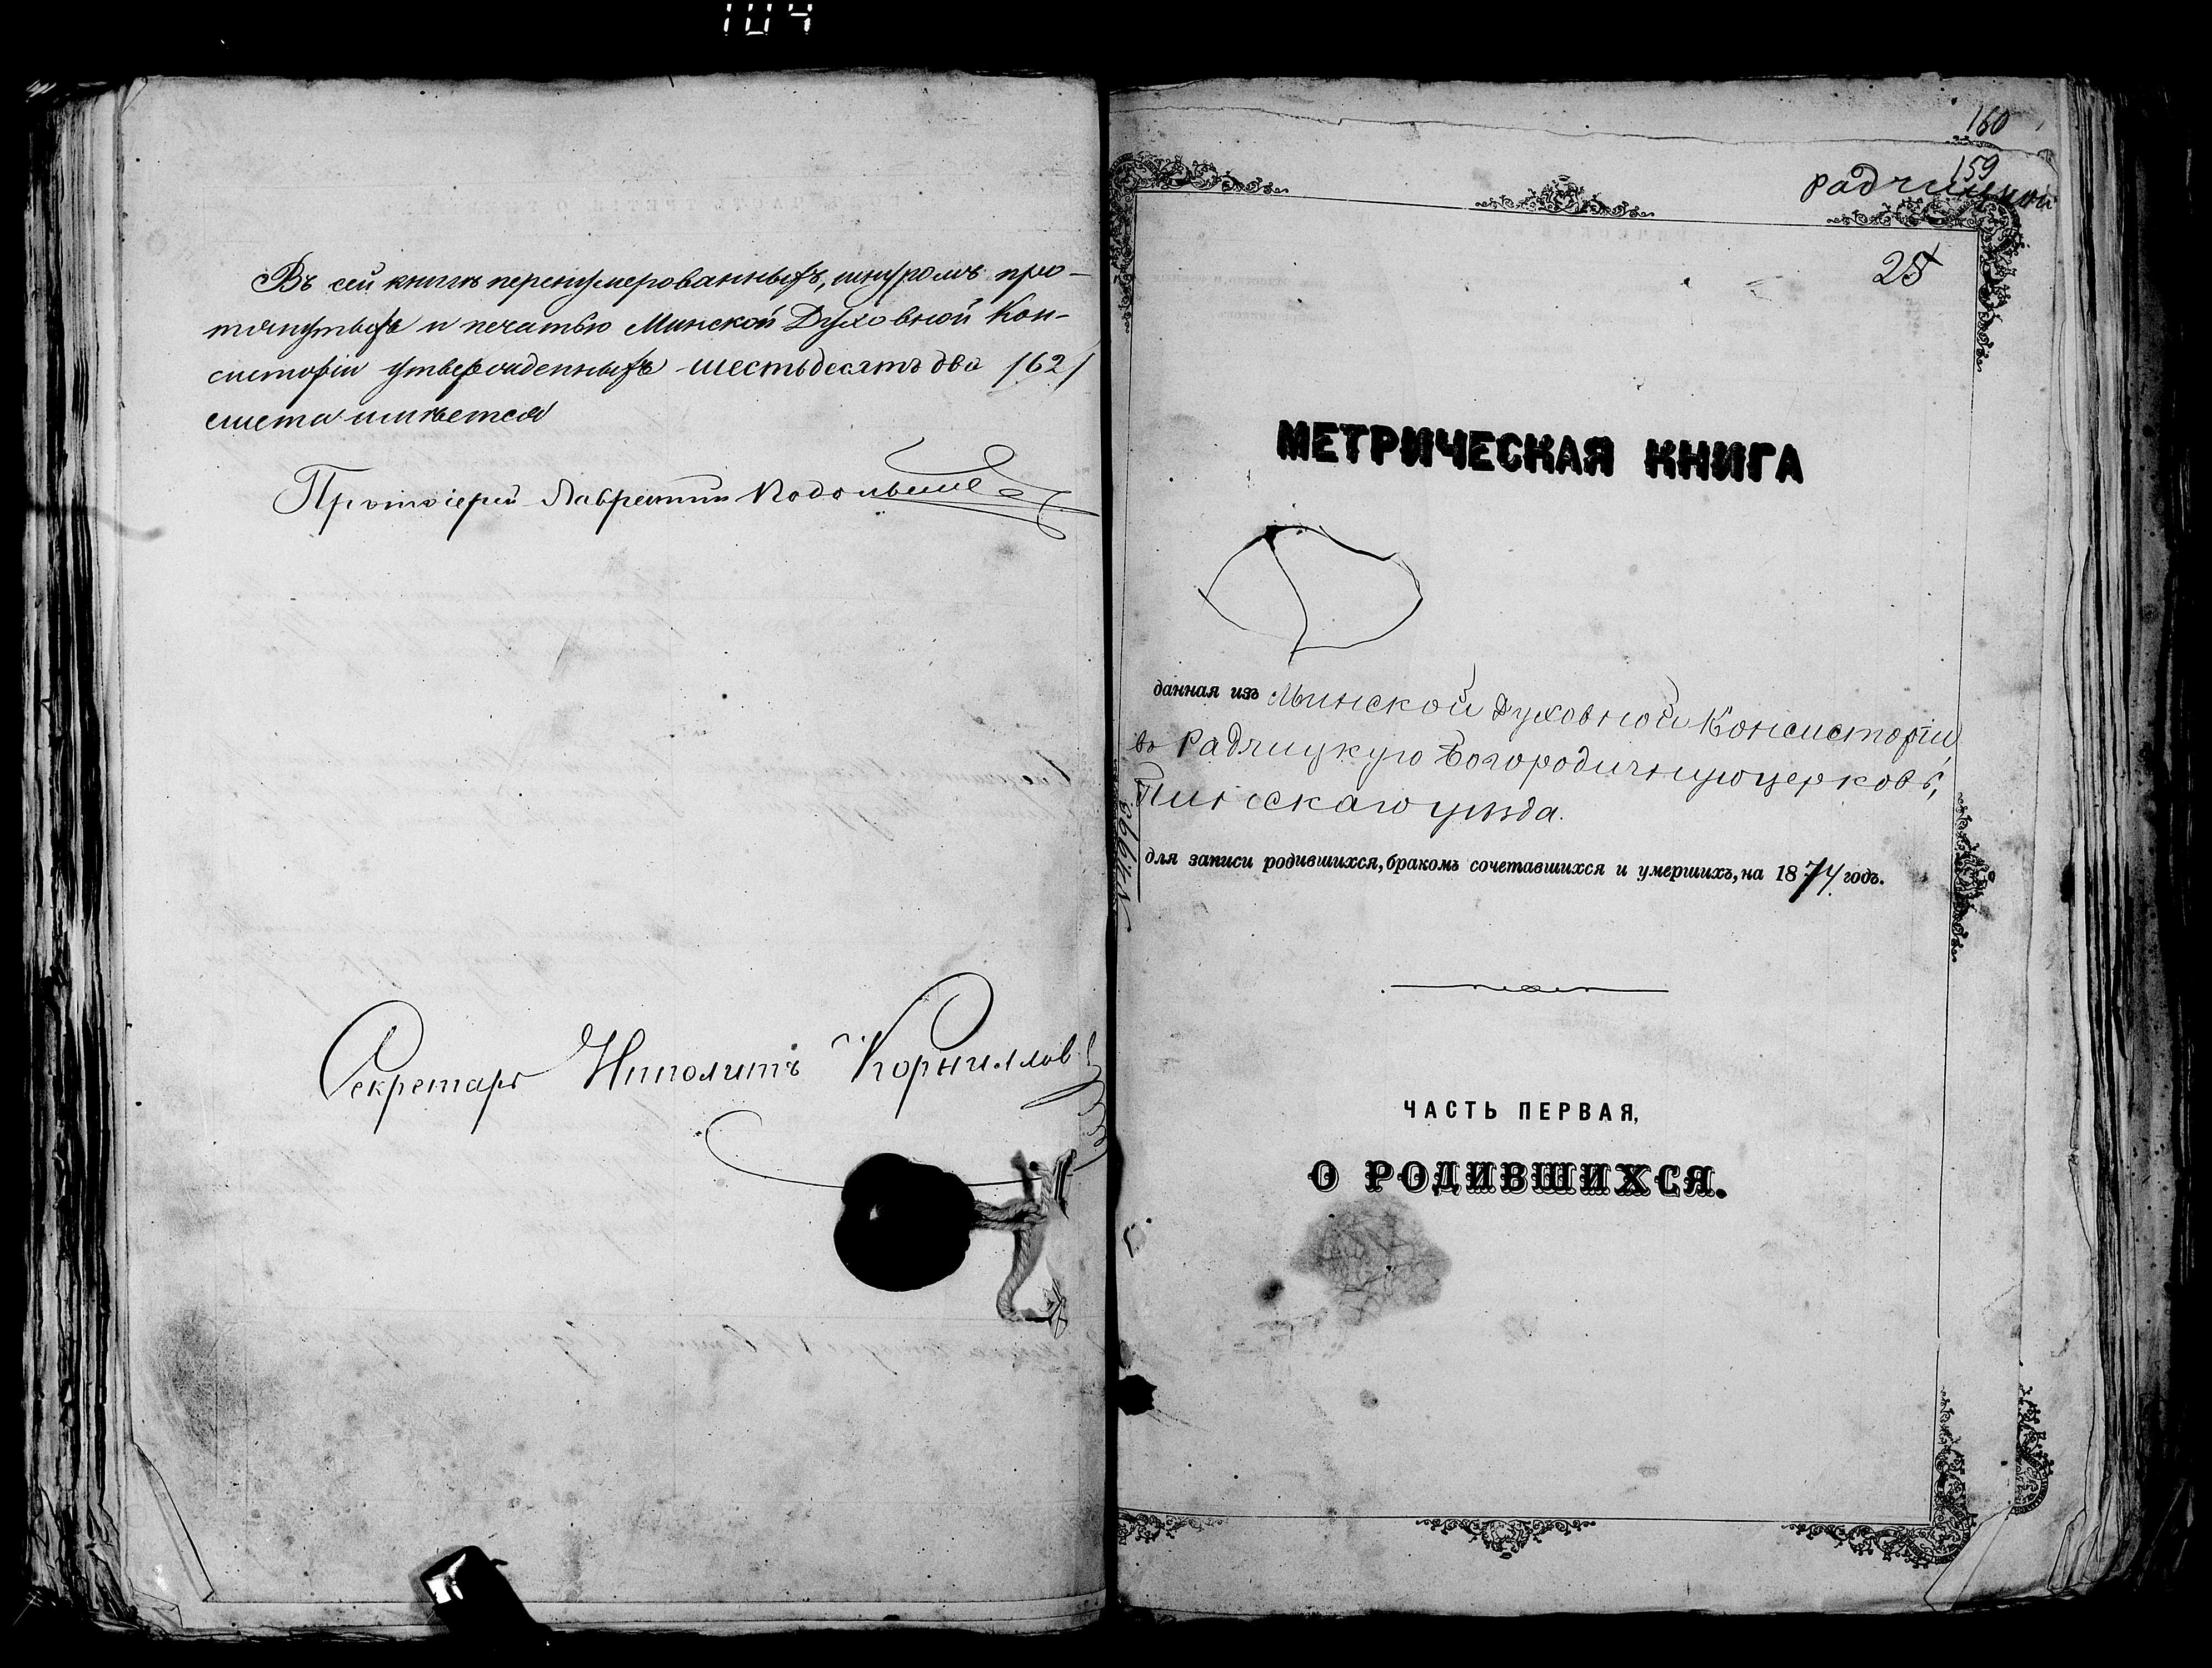 104
Въ сей книгѣ перенумерованныхъ, шнуромъ про-
тянутыхъ и печатью Минской Духовной Кон-
систоріи утвержденныхъ шестьдесятъ два /62/
листа имѣется
Протоіерей Лаврентій
Секретарь Ипполитъ Корниллов
160
159
25
МЕТРИЧЕСКАЯ КНИГА
данная изъ Минской Духовной Консисторіи
въ Радчицкую Богородичную церковь,
Пинскаго уѣзда.
для записи родившихся, бракомъ сочетавшихся и умершихъ, на 1874 годъ.
ЧАСТЬ ПЕРВАЯ,
О РОДИВШИХСЯ.